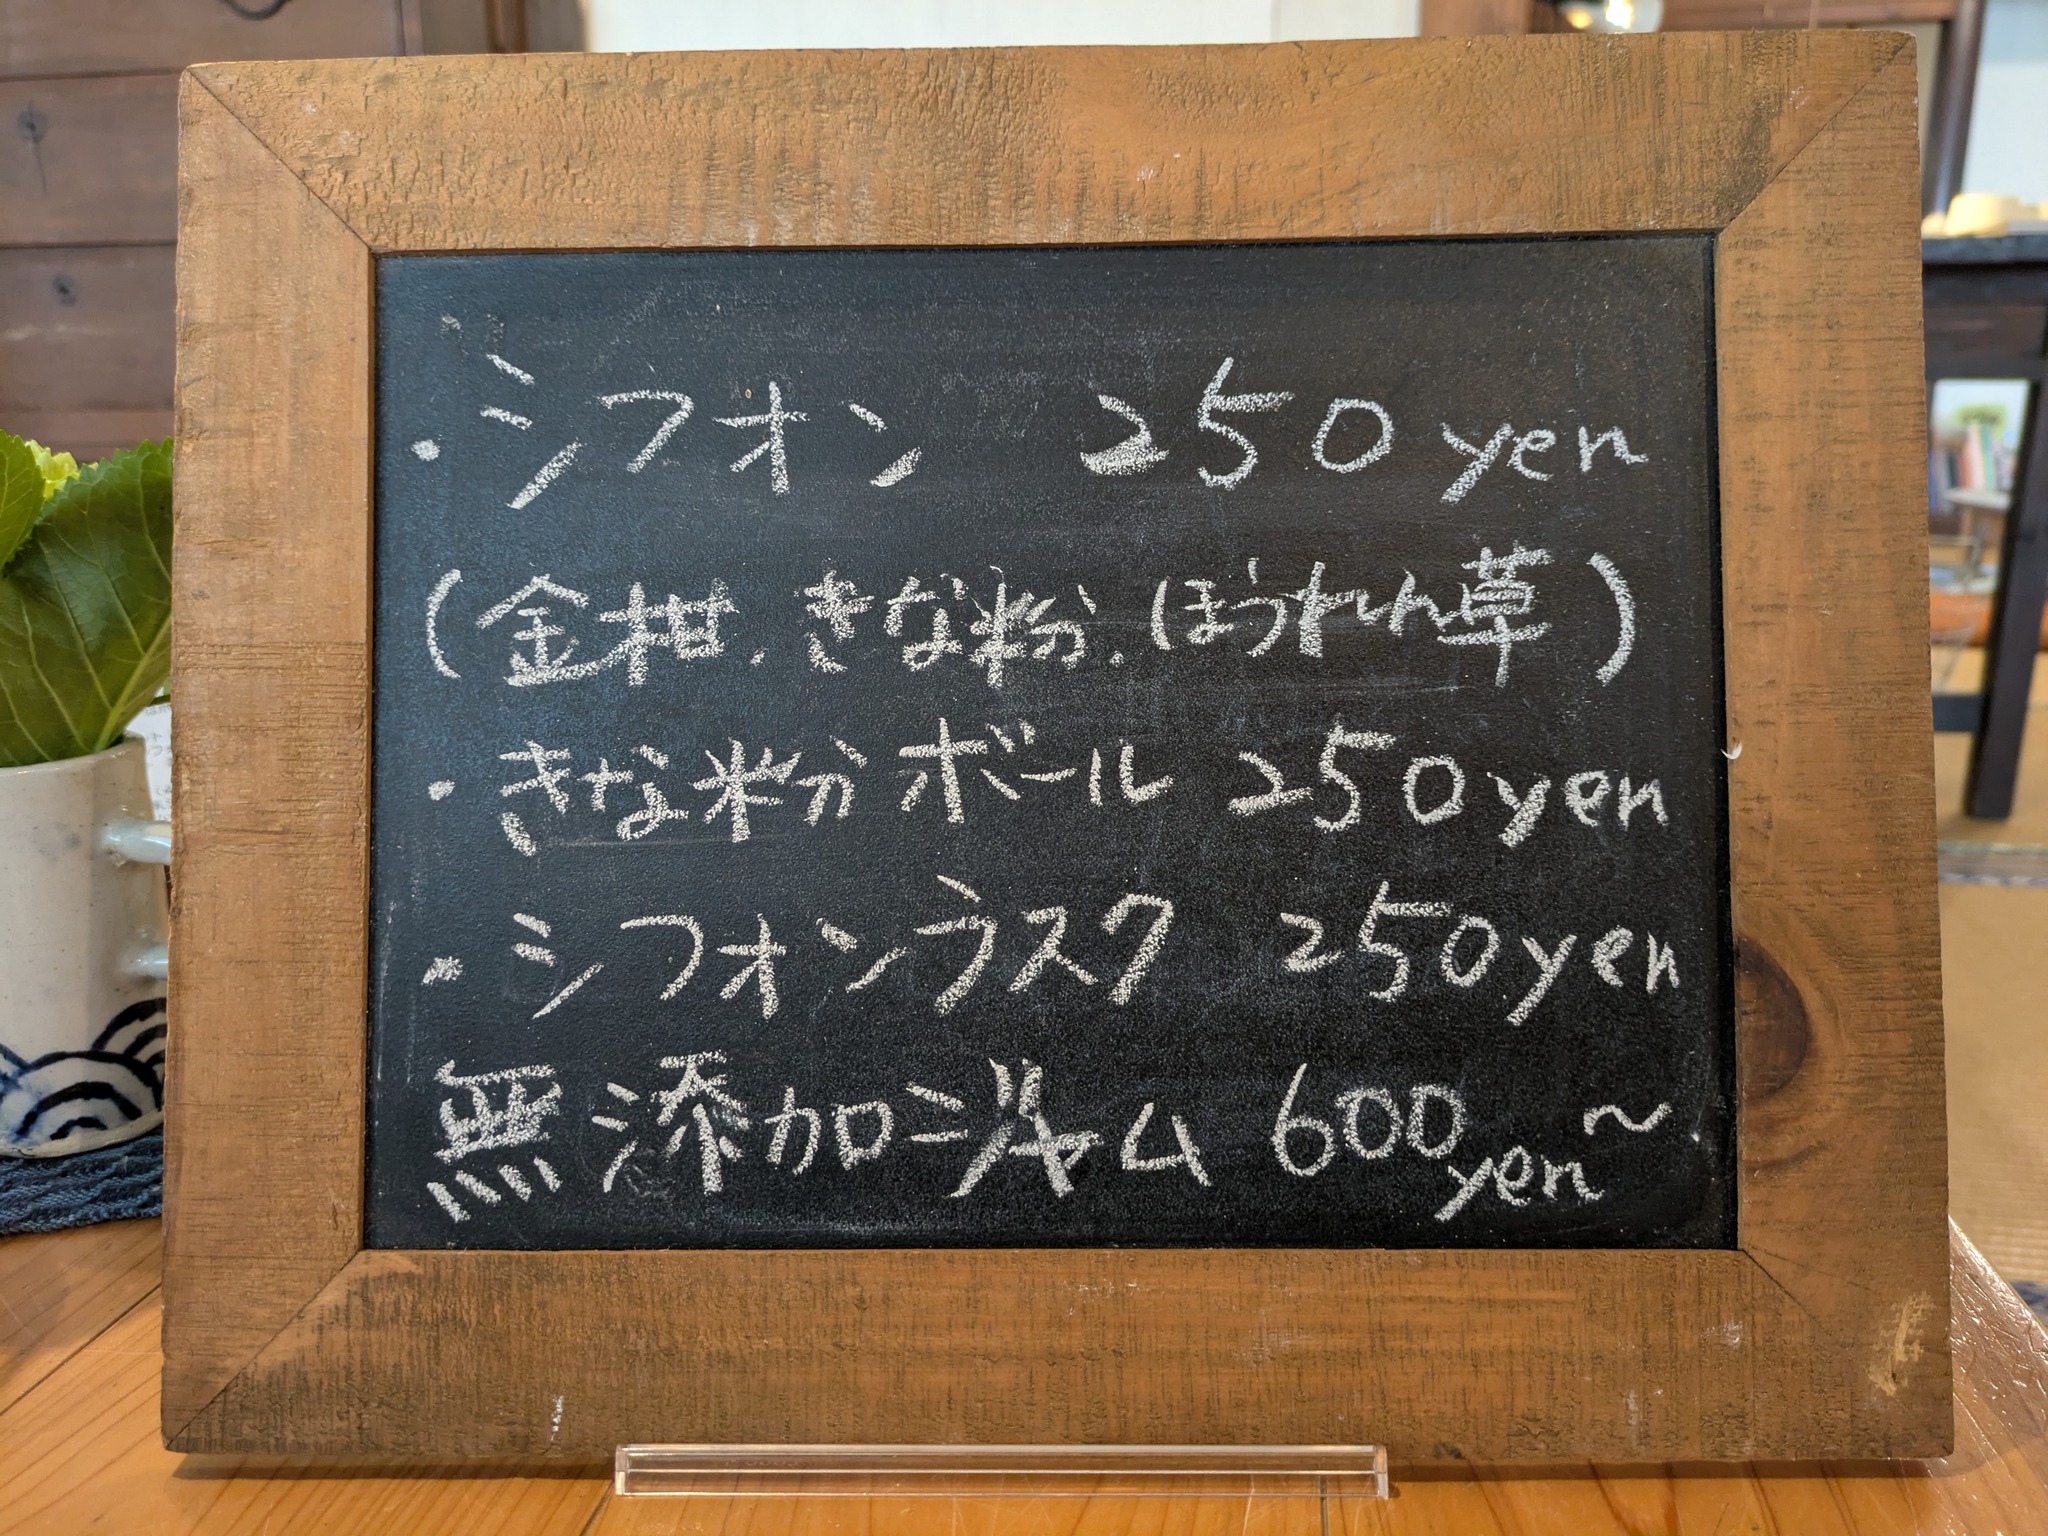 ・シフォン 250yen
(金柑、きな粉、ほうれん草)
・きな粉ボール 250yen
・シフォンラスク 250yen
無添加ジャム 600yen~